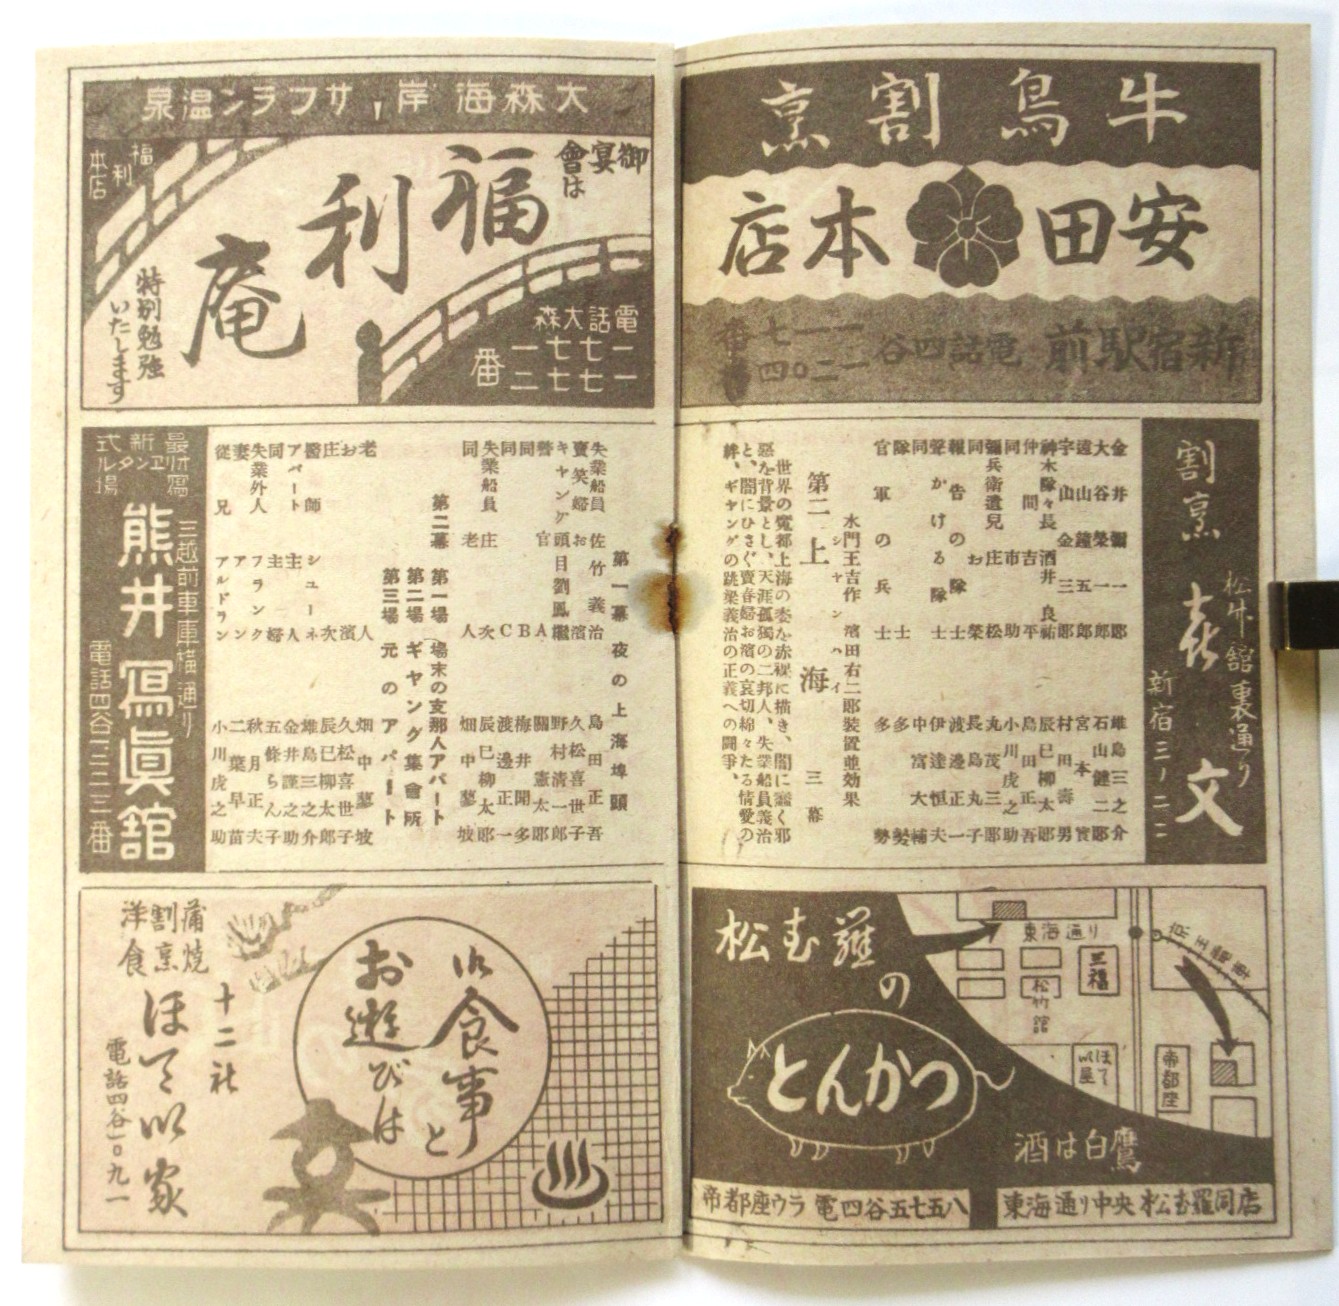 牛鳥割烹
安田本店
新宿駅前 電話四谷
割烹
㐂文
松竹館裏通り
新宿三ノ二二
金井彌一郎 雄島三之介
大谷榮一郎 石山健二郎
遠山鐘五郎 宮本實
宇山金三郎 村田壽男
神木隊々長 酒井良祐 辰巳柳太郎
仲間吉平 島田正吾
同市助 小川虎之助
彌兵衛遺兒庄松 丸茂三郎
同お榮 長島丸子
報告の隊士 渡邊正一
聲かける隊士 伊達恒夫
同 中富大輔
隊士 多勢
官軍の兵士 多勢
水門王吉作 濱田右二郎装置並効果
第二 上海 三幕
シャンハイ
世界の魔都上海の姿を赤裸に描き、闇に蠢く邪
惡を背景とし、天涯孤獨の二邦人、失業船員義治
と、闇にひさぐ賣春婦お濱の哀切綿々たる情愛の
絆、ギャングの跳梁義治の正義への闘爭、
松むら羅の
とんかつ
酒は白鷹
東海通り
三福
松竹館
ほてい屋
帝都座
京王電車
帝都座ウラ 電四谷五七五八
東海通り中央 松むら羅同店
大森海岸、サフラン温泉
御宴會は
福利庵
福利本店
特別勉強
いたします
電話大森
一七七一
二七七一
番
第一幕 夜の上海埠頭
失業船員 佐竹義治 島田正吾
賣笑婦 お濱 久松喜世子
ギャング頭目劉鳳繼 野村清一郎
警官A 關憲太郎
同B 梅井開多
同C 渡邊正一
失業船員庄次 辰巳柳太郎
同老人 畑中蓼坡
第二幕 第一場 場末の支那人アパート
第二場 ギヤング集會所
第三場 元のアパート
老人 畑中蓼坡
お濱 久松喜世子
庄次 辰巳柳太郎
醫師シューネ 雄島三之介
アパート主人 金井謹之助
同主婦 五條らん子
失業外人フランク 秋月正夫
妻アン 二葉早苗
従兄アルドラン 小川虎之助
最新式
熊井冩眞舘
三越前車庫横通り
電話四谷一三二三番
蒲焼
割烹
洋食
十二社
ほてい家
電話四谷一〇九一
御食事と
お遊びは